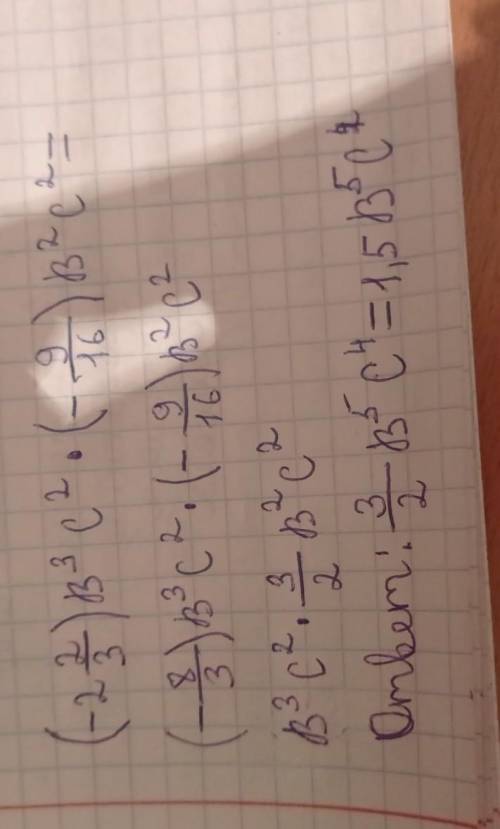 (-2 2/3) B³ C² · (- 9/16) B² C² =
(- 8/3) B³ C² · (- 9/16) B² C²
B³ C² · 3/2 B² C²
Ответ: 3/2 B⁵ C⁴ = 1,5 B⁵ C⁴